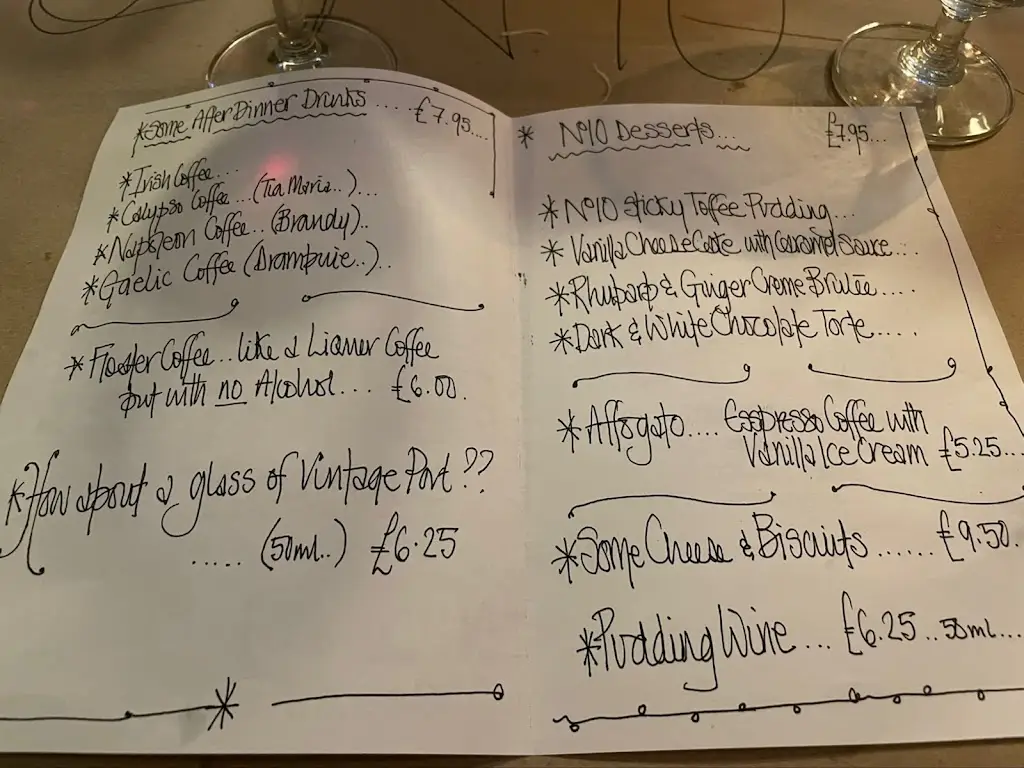 *Some After Dinner Drinks .... £7.95....
*Irish Coffee...
*Calypso Coffee...(Tia Maria..)...
*Napoleon Coffee..(Brandy)..
*Gaelic Coffee (Drambuie..)..
*Floater Coffee..like a Liquer Coffee
but with no Alcohol.... £6.00.
*How about a glass of Vintage Port??
..... (50ml..) £6.25
* No10 Desserts... £7.95...
*No10 Sticky Toffee Pudding...
*Vanilla Cheese Cake with Caramel Sauce...
*Rhubarb & Ginger Creme Brulée....
*Dark & White Chocolate Torte.....
*Affogato.... Esspresso Coffee with
Vanilla Ice Cream £5.25...
*Some Cheese & Biscuits ...... £9.50.
*Pudding Wine... £6.25..50ml...